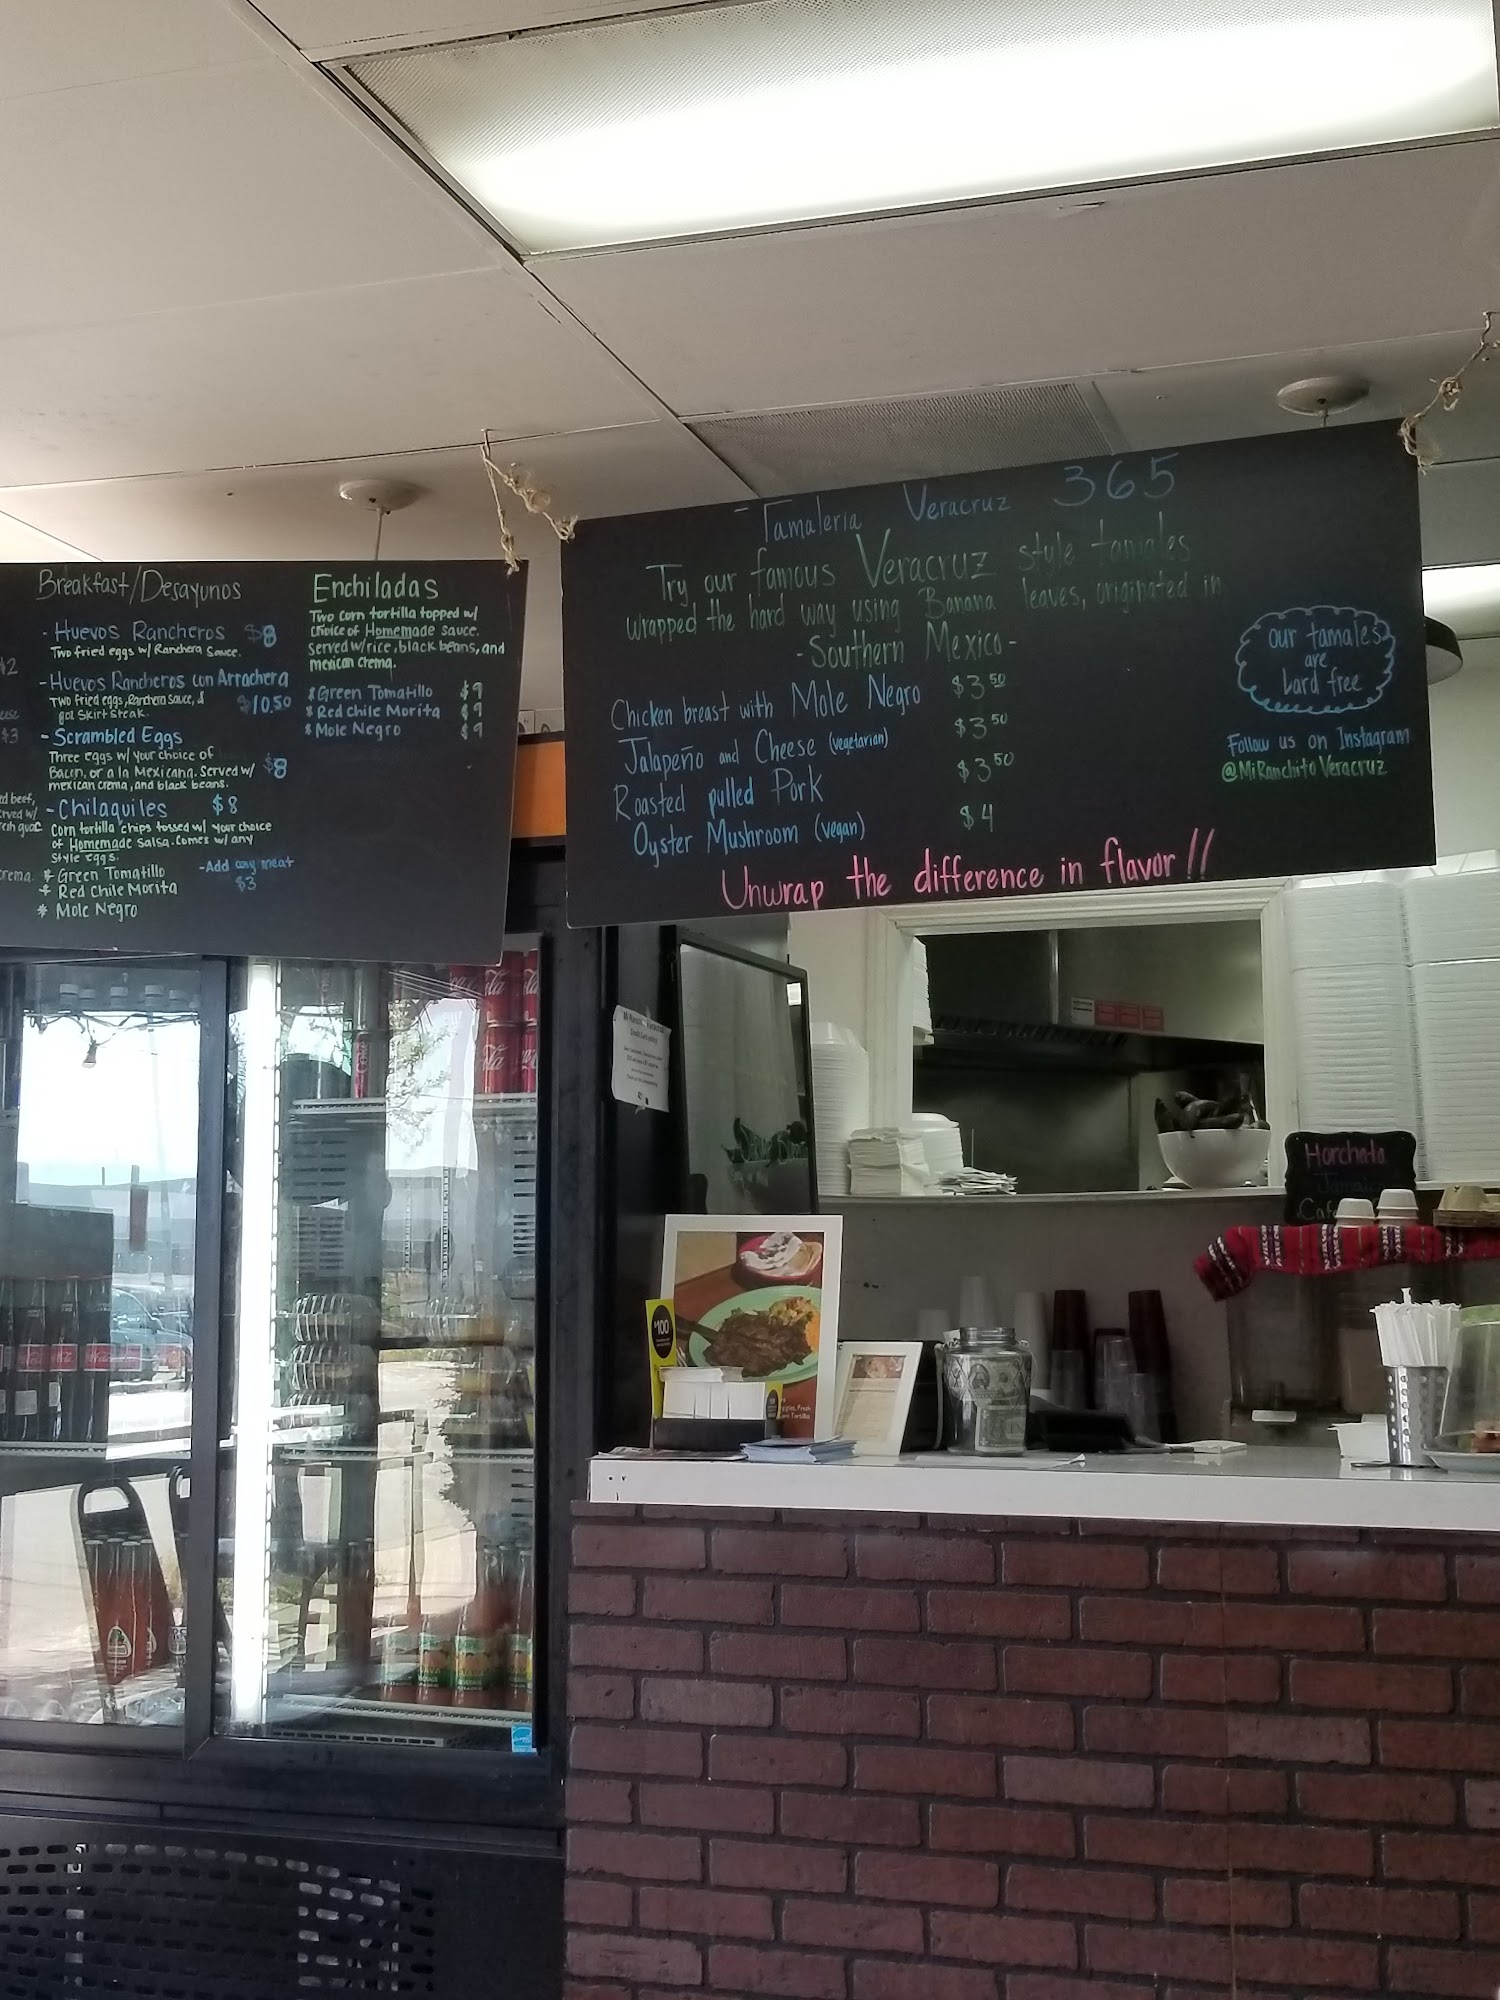 Breakfast/Desayunos
- Huevos Rancheros $8
Two fried eggs w/ Ranchera Sauce.
- Huevos Rancheros con Arrachera
Two fried eggs, Ranchera Sauce, &
$10.50
Skirt Steak.
- Scrambled Eggs
Three eggs w/ your choice of
Bacon, or a la Mexicana. Served w/
$8
mexican crema, and black beans.
- Chilaquiles $8
Corn tortilla chips tossed w/ your choice
of Homemade Salsa. Comes w/ any
Style eggs.
* Green Tomatillo
* Red Chile Morita
* Mole Negro
- Add any meat
$3
$2
$3
Enchiladas
Two corn tortilla topped w/
choice of Homemade sauce.
Served w/ rice, black beans, and
mexican crema.
* Green Tomatillo $9
* Red Chile Morita $9
* Mole Negro $9
- Tamaleria Veracruz 365
Try our famous Veracruz style tamales
wrapped the hard way using Banana leaves, originated in
- Southern Mexico -
Chicken breast with Mole Negro $3.50
Jalapeño and Cheese (vegetarian) $3.50
Roasted pulled Pork $3.50
Oyster Mushroom (vegan) $4
Unwrap the difference in flavor!!
our tamales
are
Lard free
Follow us on Instagram
@MiRanchitoVeracruz
Horchata
Jamaica
$100
Coca-Cola